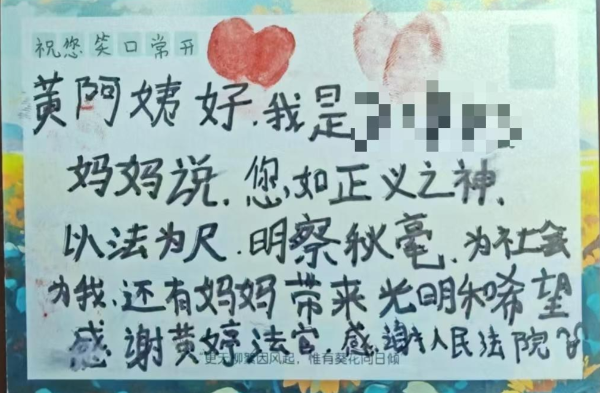 祝您笑口常开
黄阿姨好.我是
妈妈说.您如正义之神.
以法为尺.明察秋毫.为社会
为我.还有妈妈带来光明和希望
感谢黄婷法官.感谢人民法院
更无柳絮因风起,惟有葵花向日倾